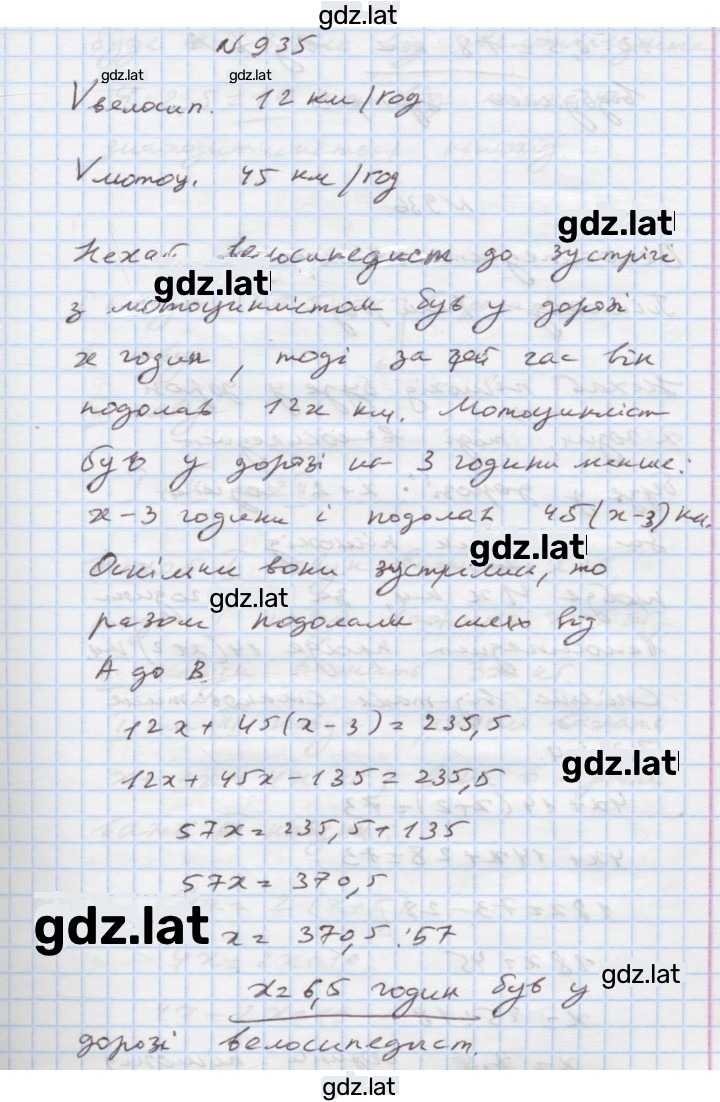 gdz.lat
№935
gdz.lat gdz.lat
Vвелосип. 12 км/год
Vмотоц. 45 км/год
gdz.lat
Нехай велосипедист до зустрічі
gdz.lat
з мотоциклістом був у дорозі
х годин, тоді за цей час він
подолав 12х км. Мотоцикліст
був у дорозі на 3 години менше:
х-3 години і подолав 45(х-3) км.
gdz.lat
Оскільки вони зустрілися, то
gdz.lat
разом подолали шлях від
А до В.
12х+45(х-3)=235,5
gdz.lat
12х+45х-135=235,5
57х=235,5+135
57х=370,5
gdz.lat
х=370,5:57
gdz.lat
х=6,5 годин був у
дорозі велосипедист.
gdz.lat